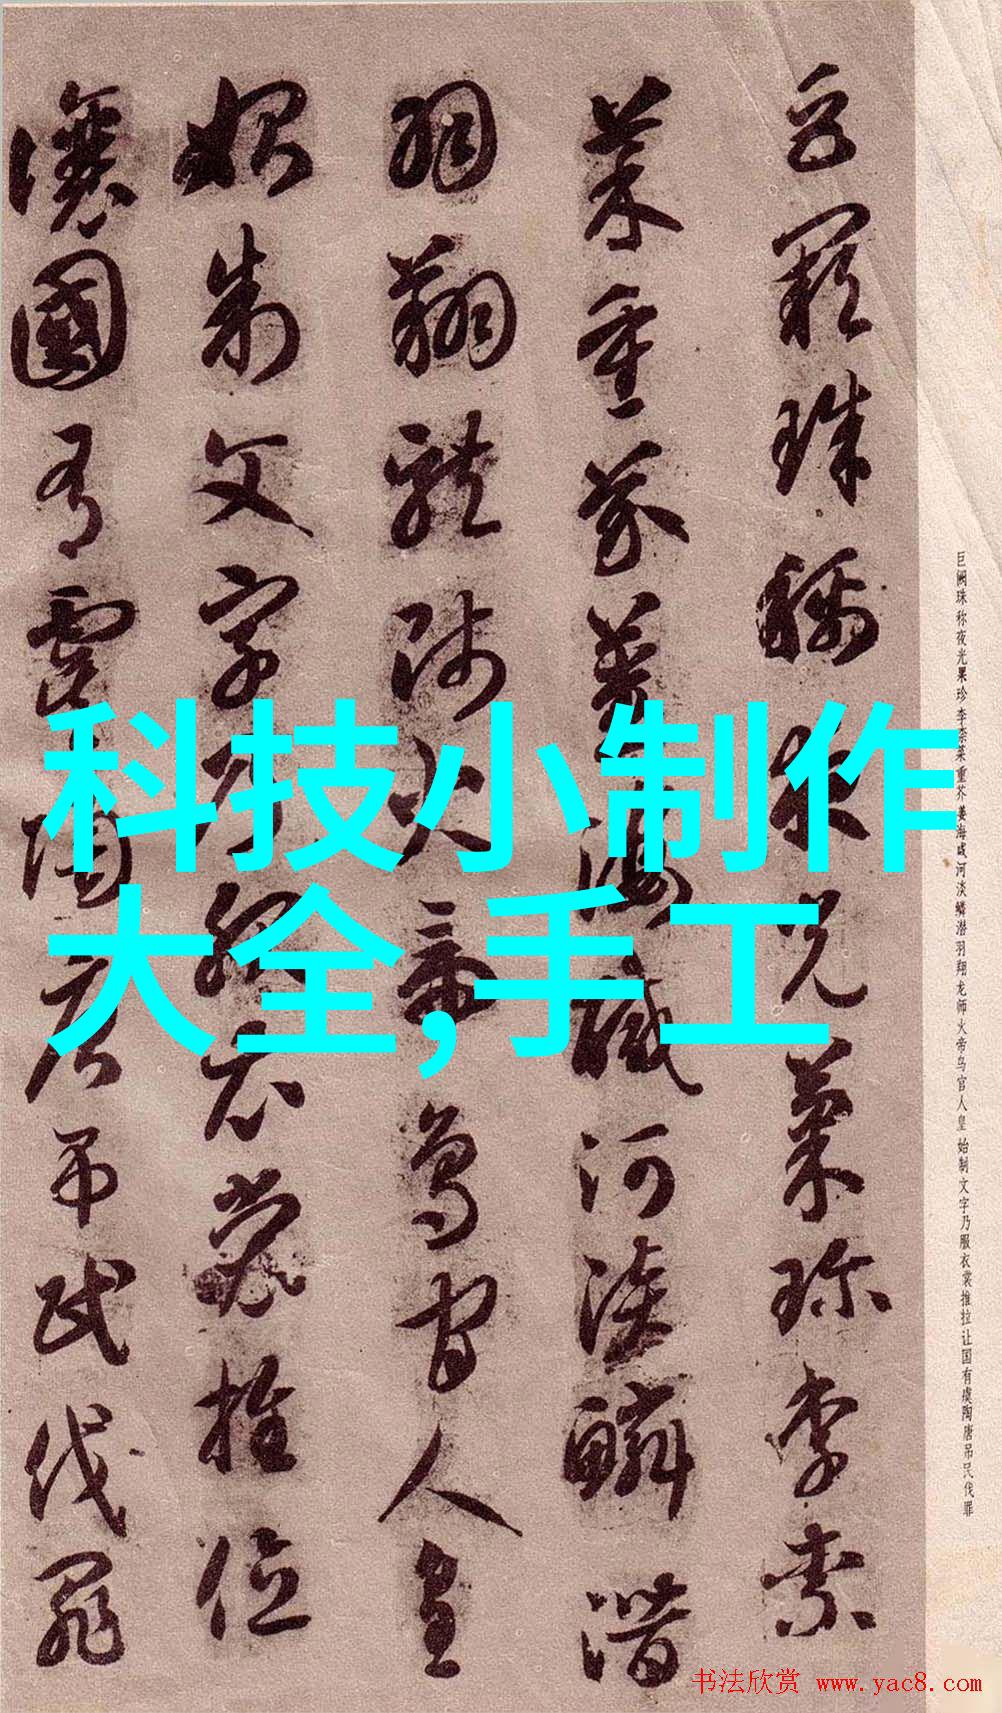 巨闕珠稱夜光菓珍李柰
菜重芥薑海鹹河淡鱗潛
羽翔龍師火帝鳥官人皇
始制文字乃服衣裳推位
讓國有虞陶唐弔民伐罪
巨阙珠称夜光果珍 李柰菜重芥姜海咸河淡鳞潜羽翔龙师火帝鸟官人皇 始制文字乃服衣裳推拉让国有虞陶唐吊民伐罪
科技小制作
大全,手工
书法欣赏 www.yac8.com